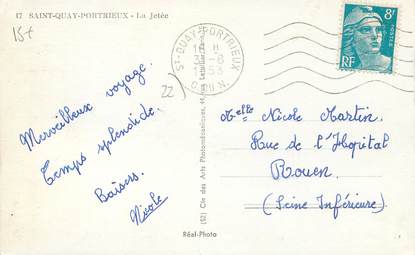 17 SAINT-QUAY-PORTRIEUX - La Jetée
15+
ST-QUAY-PORTRIEUX
1953
C. DU N.
8F
POSTES
RF
22
Merveilleux voyage.
Temps splendide.
Baisers.
Nicole
(52) Cie des Arts Photomécaniques, 44,
Réal-Photo
Melle Nicole Martin.
Rue de l'Hôpital
Rouen.
(Seine Inférieure)